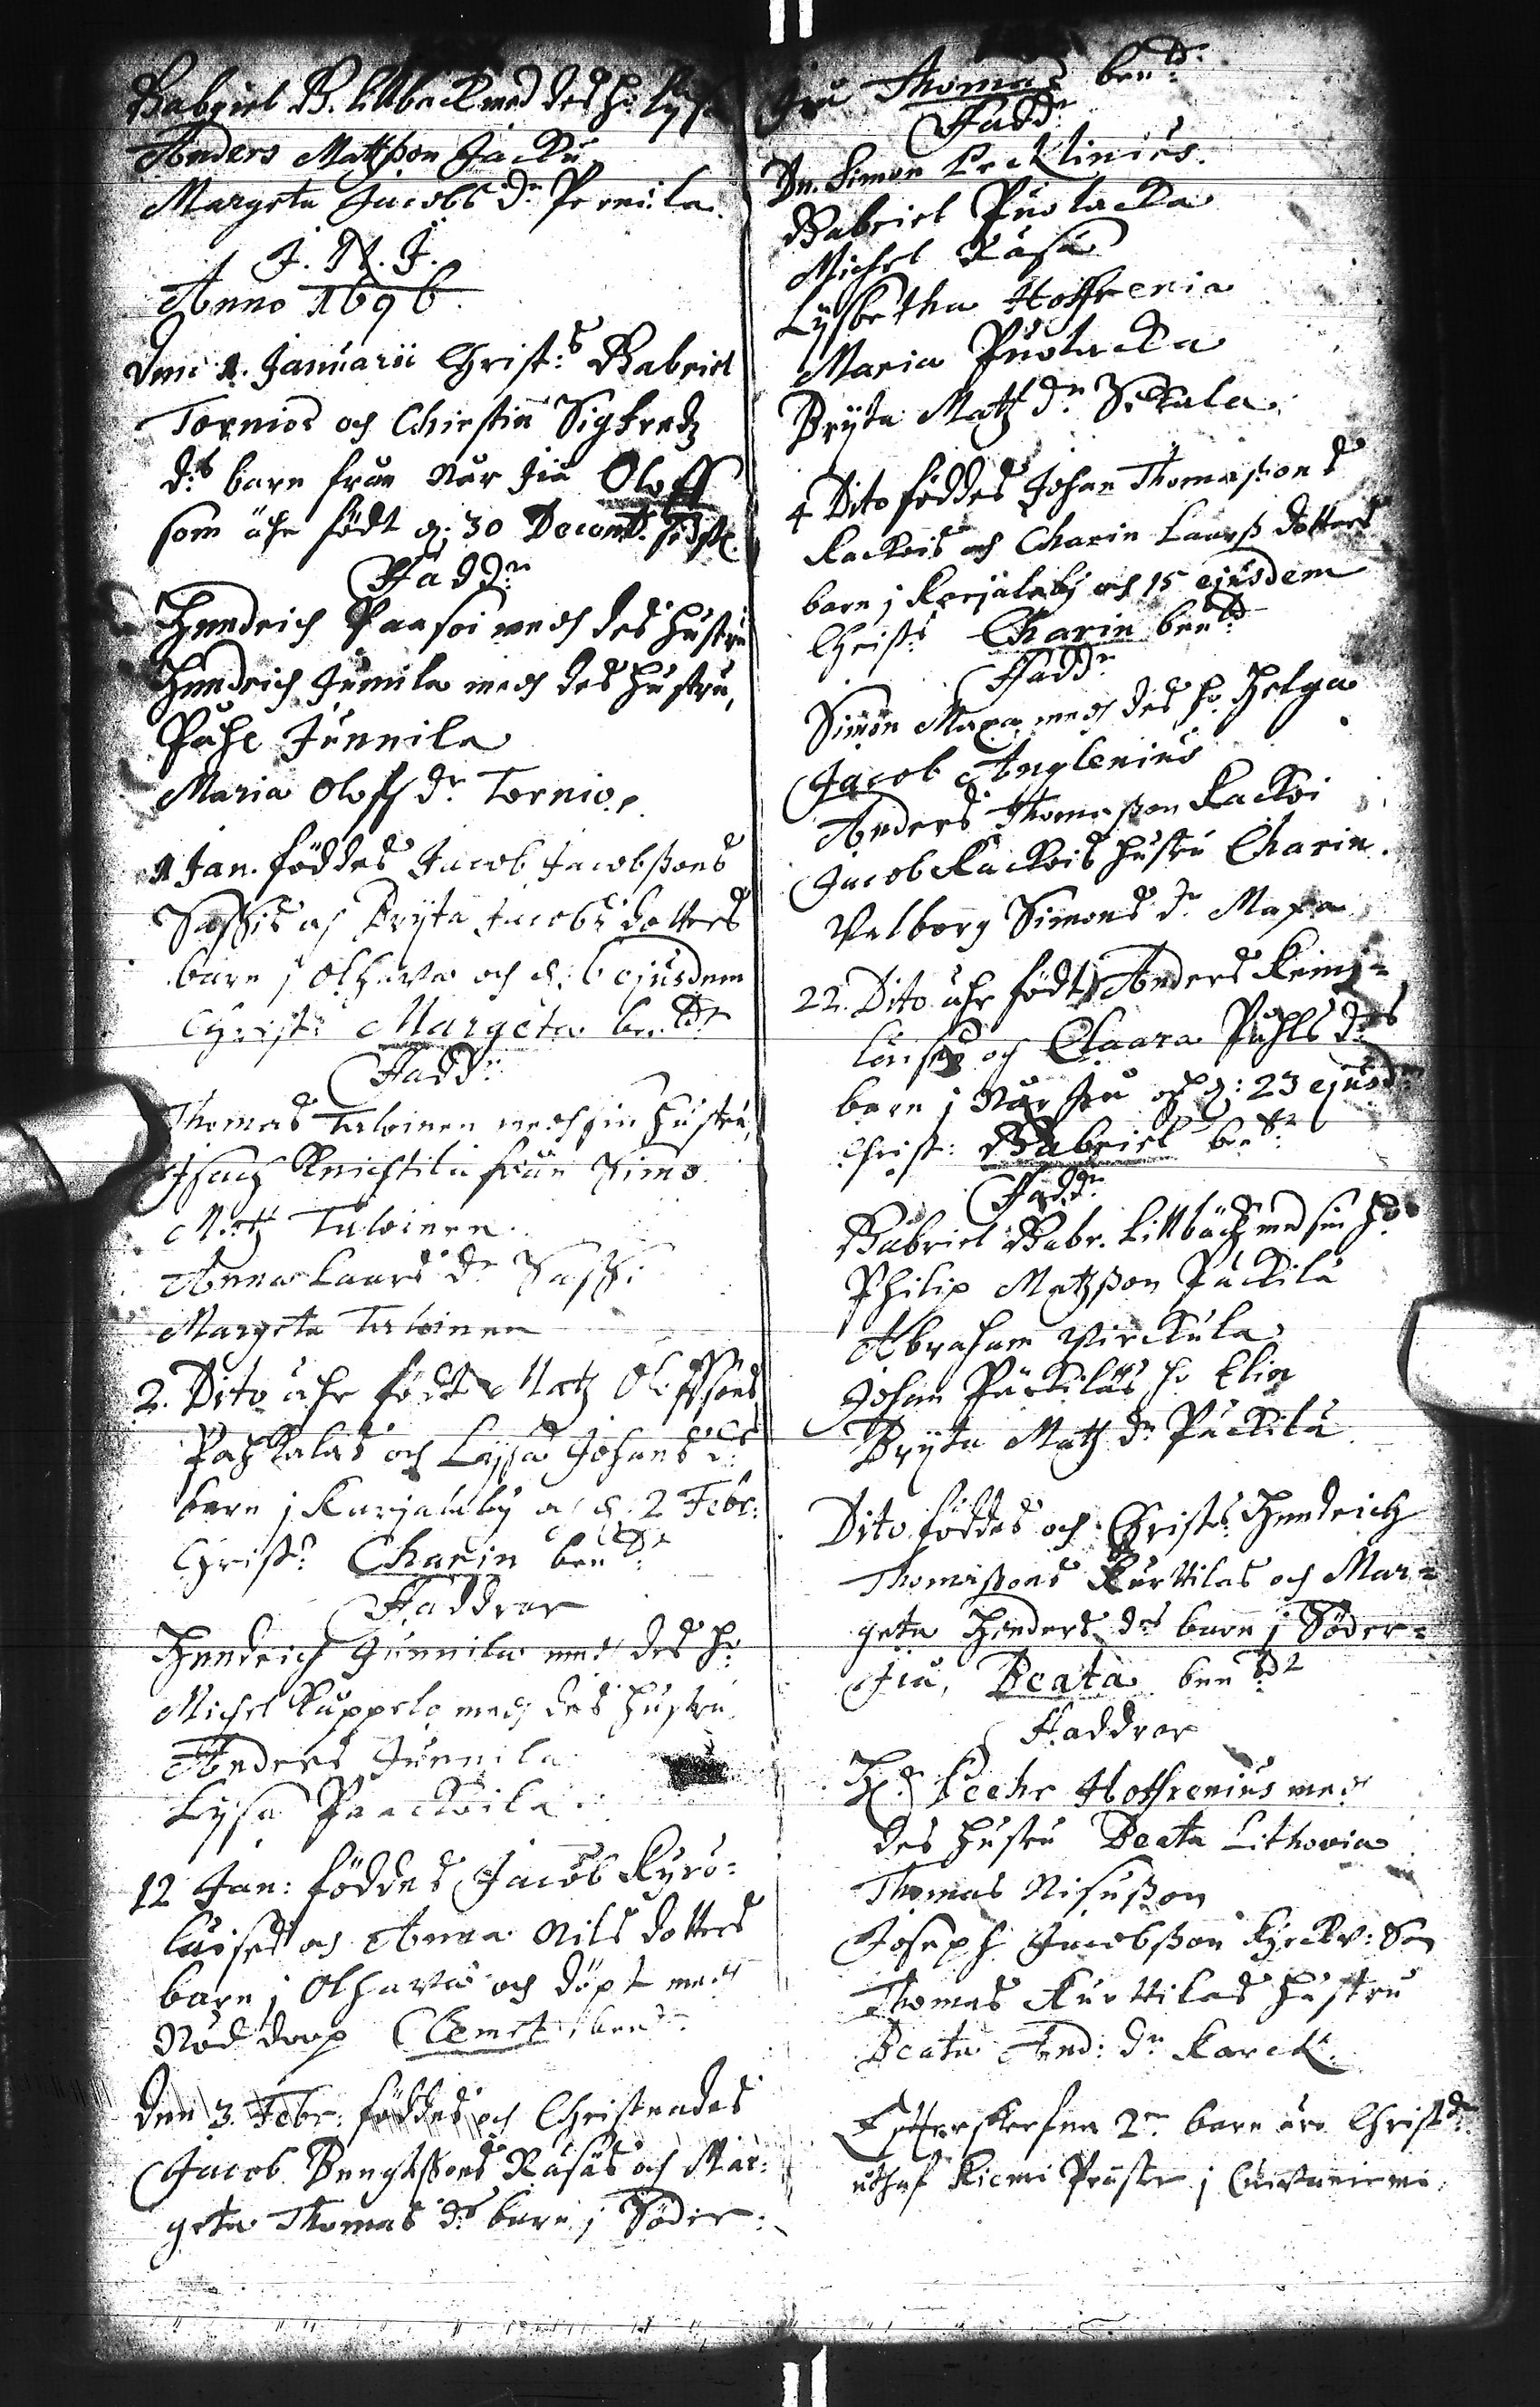 Gabriel G. Littback med des h: Lysa
Anders Mattsson Jacku
Margeta Jacobs dr Pernula
J. N. J.
Anno 1696.
Den 1. Januarii Christ:s Gabriel
Tornios och Christin Sigfredz
d:s barn från Nor Jiå Oloff
som ähr födt d: 30 Decemb. sidst.
Fadd:r
Hendrich Paasoi medh des hustru
Hendrich Junnila medh des hustru,
Påhl Junnila
Maria Olofs dr Tornio.
1 Jan. föddes Jacob Jacobssons
Sassis och Bryta Jacobs dotters
barn j Olhava och d: 6 ejusdem
Christ: Margeta ben:dr
Fadd:r
Thomas Taloinen medh sin hustru,
Isach Knichtila från Simo
Matz Taloinen.
Anna Laars dr Sassi
Margeta Taloinen
2. Dito ähr födt Matz Olofssons
Paskalas och Lysa Johans d:s
barn j Karjalaby och d. 2 Febr:
Christ:s Charin ben:dr
Faddrar
Hendrich Junnila medh des h:
Michel Kuppelo medh des hustru
Anders Junnila
Lysa Paackoila
12 Jan: föddes Jacob Kyrö=
läises och Anna Nils dotters
barn j Olhava och döpt medh
Nöd doop Clemet ben:
Den 3. Febr: föddes och Christnades
Jacob Bengtssons Räsäs och Mar:
geta Thomas d:s barn j Söder:
Jiå Thomas ben:dr
Fadd:r
Dn. Simon Pecklinius.
Gabriel Puolacka
Michel Räsä
Lysbetha Hoffrenia
Maria Puolacka
Bryta Matz dr Sickala
4 Dito föddes Johan Thomassons
Kackois och Charin Laarss dotters
barn j Karjalaby och 15 ejusdem
Christ:s Charin ben:dr
Fadd:r
Simon Maxa medh des h: Helga
Jacob Anglenius
Anders Thomasson Kackoi
Jacob Kackois hustru Charin.
Valborg Simons dr Maxa
22. Dito ähr födt Anders Keins=
läises och Claara Påhls d:s
barn j Norjiå och d: 23 ejusd:
Christ: Gabriel ben:
Fadd:r
Gabriel Gabr. Littbäch med sin h:
Philip Matzsson Päckilä
Abraham Virckula
Johan Päckiläs h: Elin
Bryta Matz dr Päckilä
Dito föddes och Christ:s Hendrich
Thomassons Kurttilas och Mar=
geta Henders d:s barn j Söder=
Jiå, Beata ben:dr
Faddrar
H:r Peehr Hoffrenius medh
des hustru Beata Lithovia
Thomas Nisusson
Joseph Jacobsson
Thomas Kurttilas hustru
Beata And: dr Karck
Effterskrefne 2:ne barn äro Christ:de
uthaf Kiemi Präster j Cuivaniemi